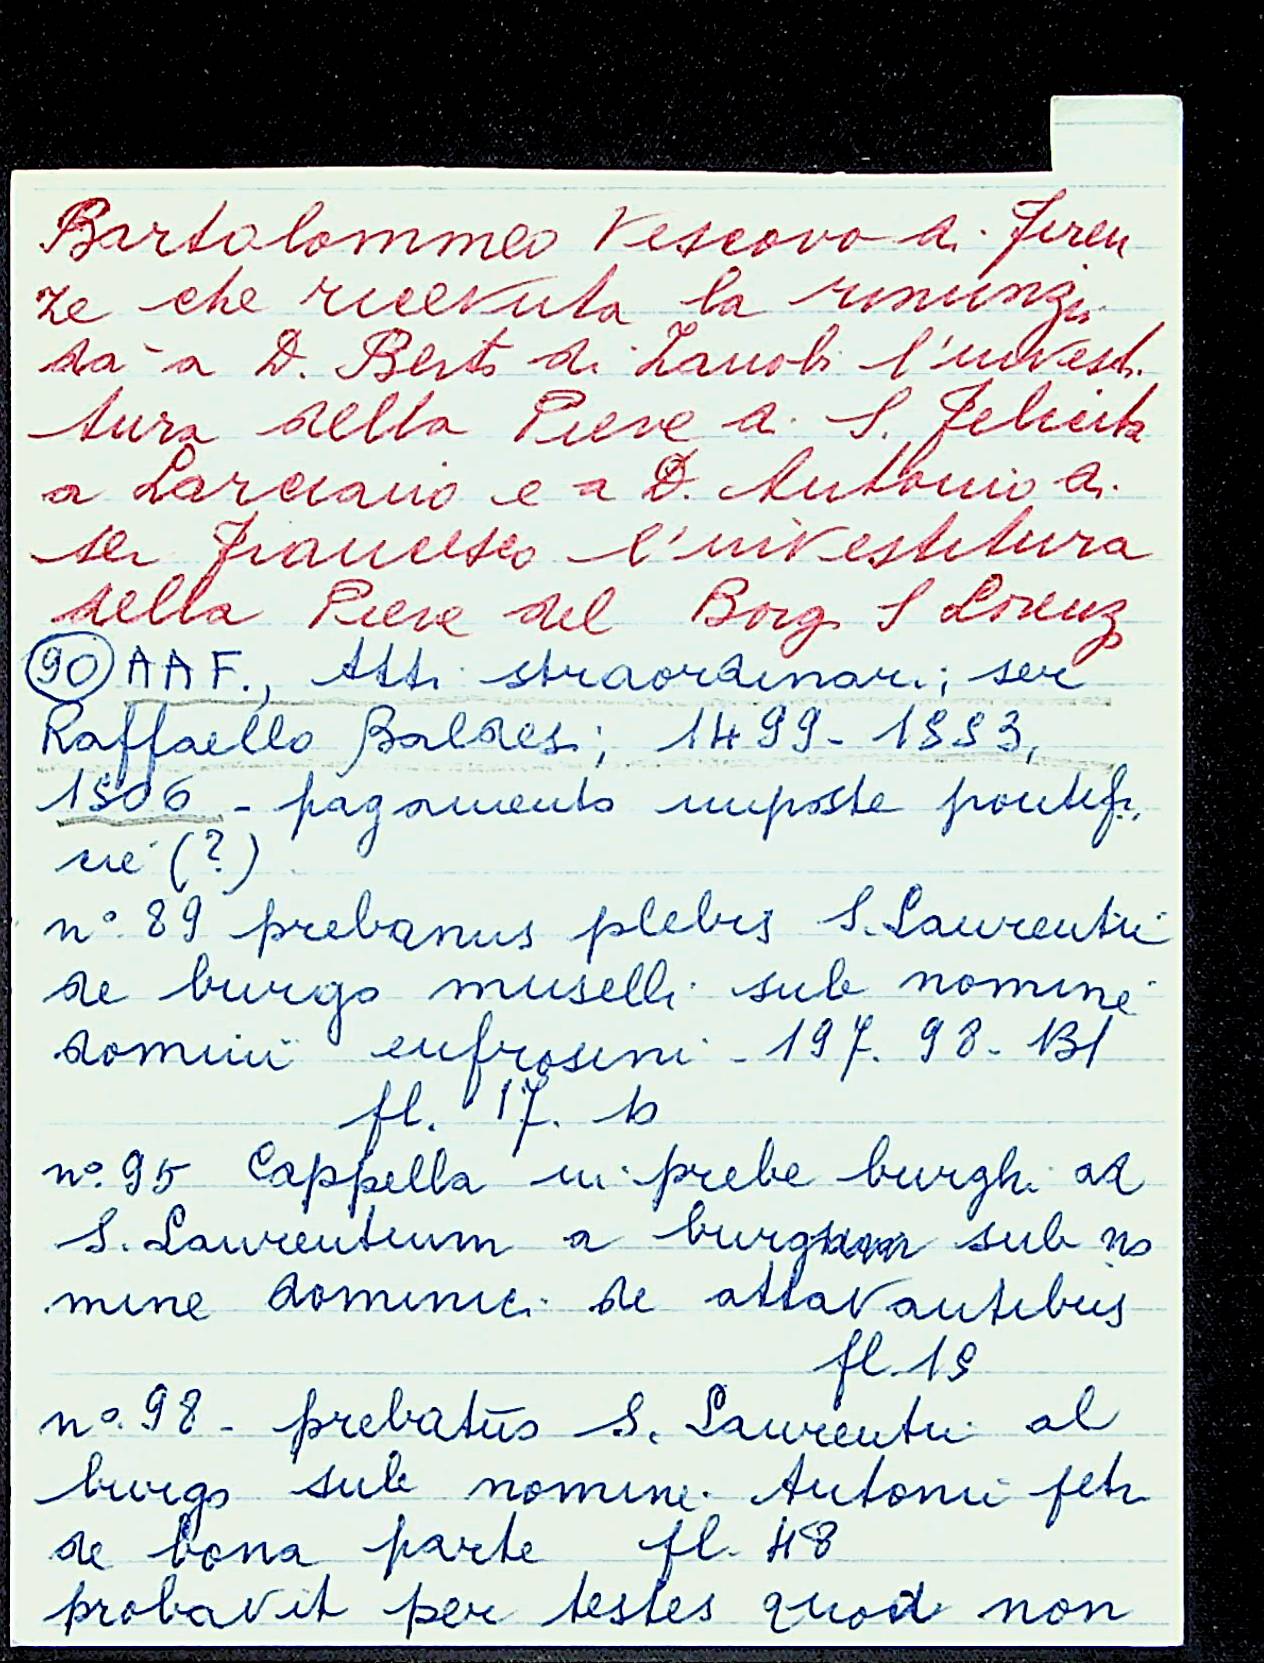 Bartolommeo Vescovo di Firen
ze che ricevuta la rinunzia
dà a D. Berto di Zanobi l'investi
tura della Pieve di S. Felicita
a Larciano e a D. Antonio di
ser Francesco l'investitura
della Pieve del Borgo S Lorenzo
90 AAF., Atti straordinari; ser
Raffaello Baldesi; 1499-1553,
1506 - pagamento imposte pontifi
cie (?)
n° 89 prebanus plebis S. Laurentii
de burgo muselli sub nomine
dominii eufrosini - 197. 98- B1
fl. 17. b
n° 95 Cappella in prebe burghi ad
S. Laurentium a burgum sub no
mine dominici de attavantibus
fl. 15
n° 98 - prebatūs S. Laurentii al
burgo sub nomine Antonii petri
de bona parte fl. 48
probavit per testes quod non